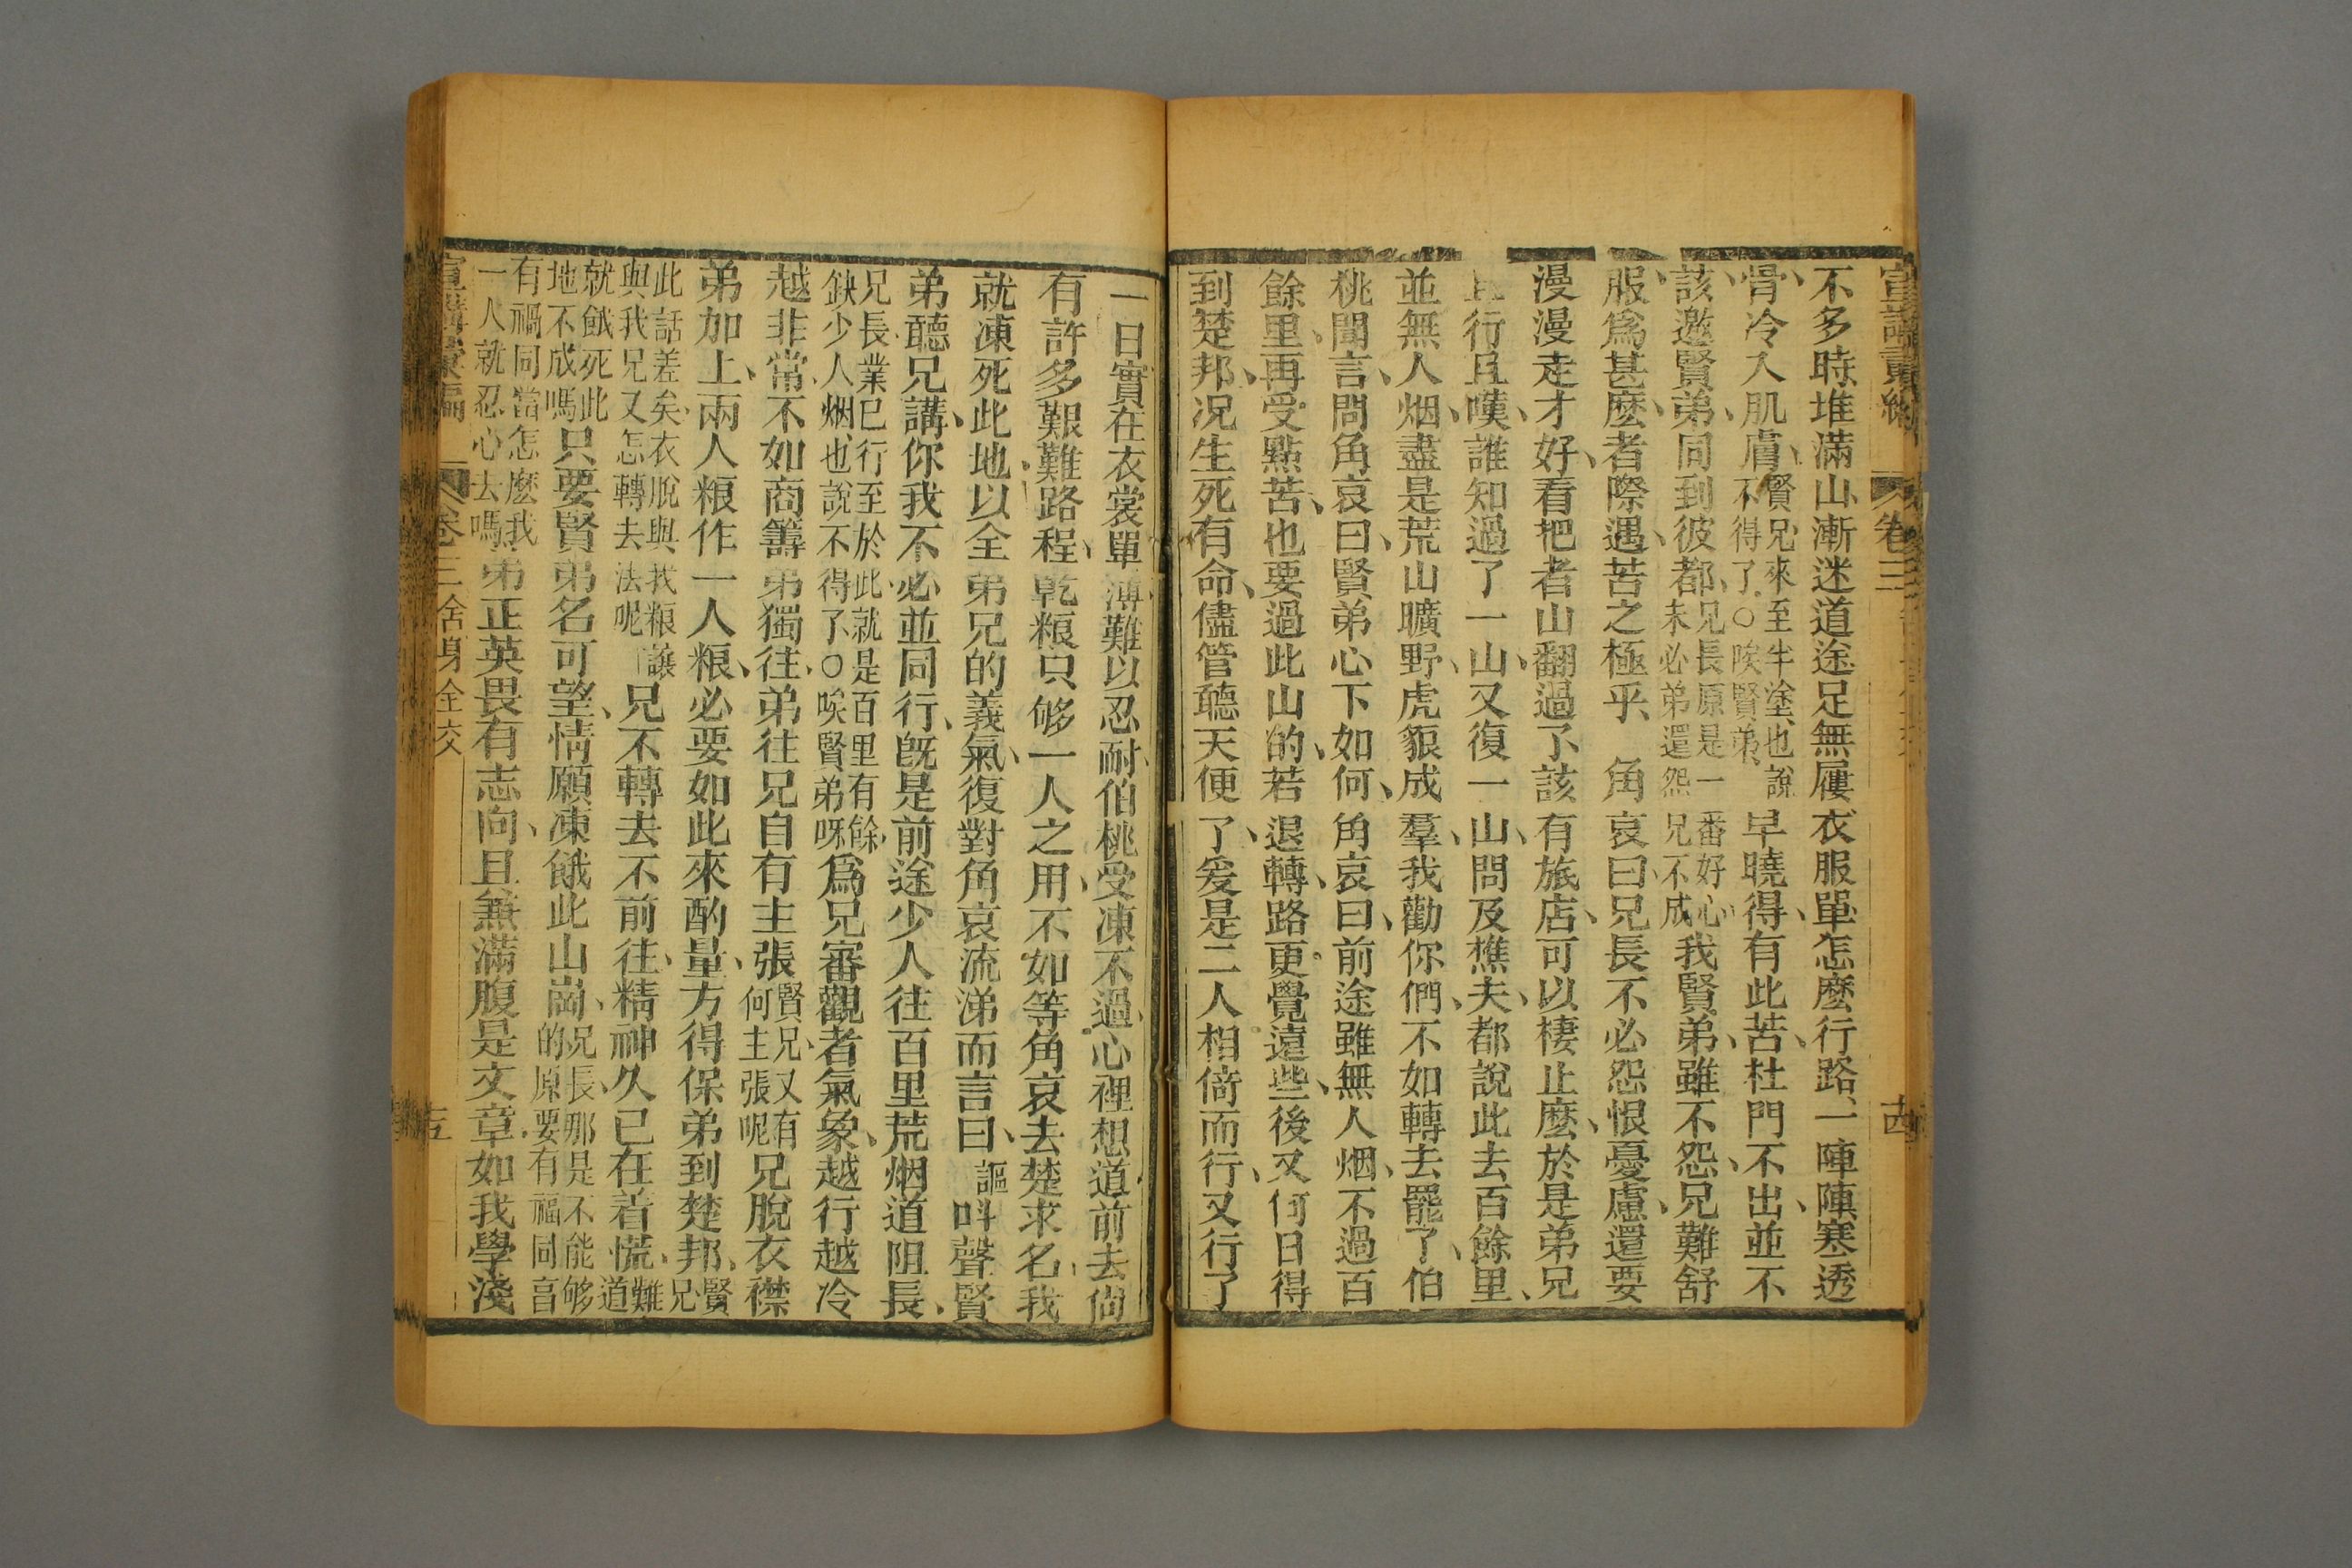 卷三
不多時堆滿山漸迷道途足無屨衣服單怎麽行路、一陣陣寒透
骨冷入肌膚、賢兄來至半塗、也說不得了、○唉賢弟、早曉得、有此苦、杜門不出、並不
該邀賢弟、同到彼都、兄長原是一番好心、未必弟還怨兄不成我賢弟、雖不怨、兄難舒
服、爲甚麽、者際遇、苦之極乎、角哀曰、兄長不必怨恨憂慮、還要
漫漫走才好、看把者山翻過了、該有旅店、可以棲止麽、於是弟兄
且行且嘆、誰知過了一山、又復一山、問及樵夫、都說此去百餘里、
並無人烟、盡是荒山曠野、虎狼成羣、我勸你們、不如轉去罷了、伯
桃聞言、問角哀曰、賢弟心下如何、角哀曰、前途雖無人烟、不過百
餘里、再受點苦、也要過此山的、若退轉、路更覺遠些、後又何日得
到楚邦、况生死有命、儘管聽天便了、爰是二人相倚而行、又行了
一日實在衣裳單薄難以忍耐伯桃受凍不過、心裡想道前去尙
有許多艱難路程、乾粮只够一人之用、不如等角哀去楚求名、我
就凍死此地、以全弟兄的義氣、復對角哀流涕而言曰、謳呌聲賢
弟聽兄講、你我不必並同行、旣是前途少人往百里荒烟道阻長、
兄長業已行至於此、就是百里有餘、缺少人烟、也說不得了、○唉賢弟呀爲兄審觀者氣象、越行越冷
越非常、不如商籌弟獨往、弟往兄自有主張賢兄、又有何主張呢兄脫衣襟
弟加上、兩人粮作一人粮、必要如此來酌量、方得保弟到楚邦、賢兄
此話差矣、衣脫與我粮讓與我兄又怎轉去法呢兄不轉去不前往、精神久已在着慌、難道
就餓死此地不成嗎只要賢弟名可望、情願凍餓此山崗、兄長、那是不能够的原要有福同享
有禍同當怎麽我一人就忍心去嗎弟正英畏有志向、且無滿腹是文章、如我學淺
卷三 舍身全交